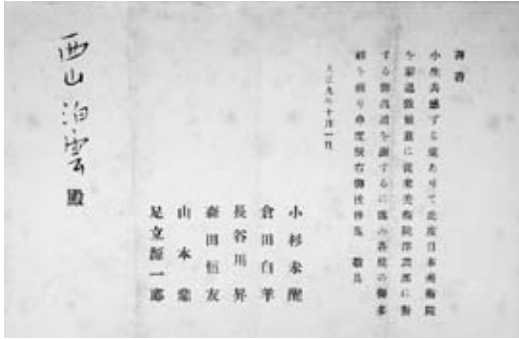 小生共感ずる處ありて此度日本美術院
を退致候茲に從來美術院洋畫部に對
する御高を謝するに臨み各位の御多
祥を祈り申度候右御挨拶迄　敬具
大正九年十月一日
小杉未醒
倉田白羊
長谷川昇
森田恒友
山本鼎
足立源一郎
西山泊雲殿